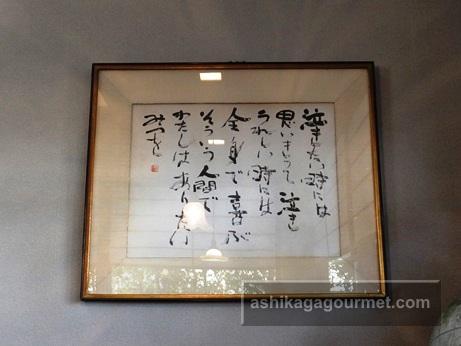 泣きたい時には
思いきって泣き
うれしい時には
全身で喜ぶ
そういう人間で
わたしはありたい
みつを
ashikagagourmet.com